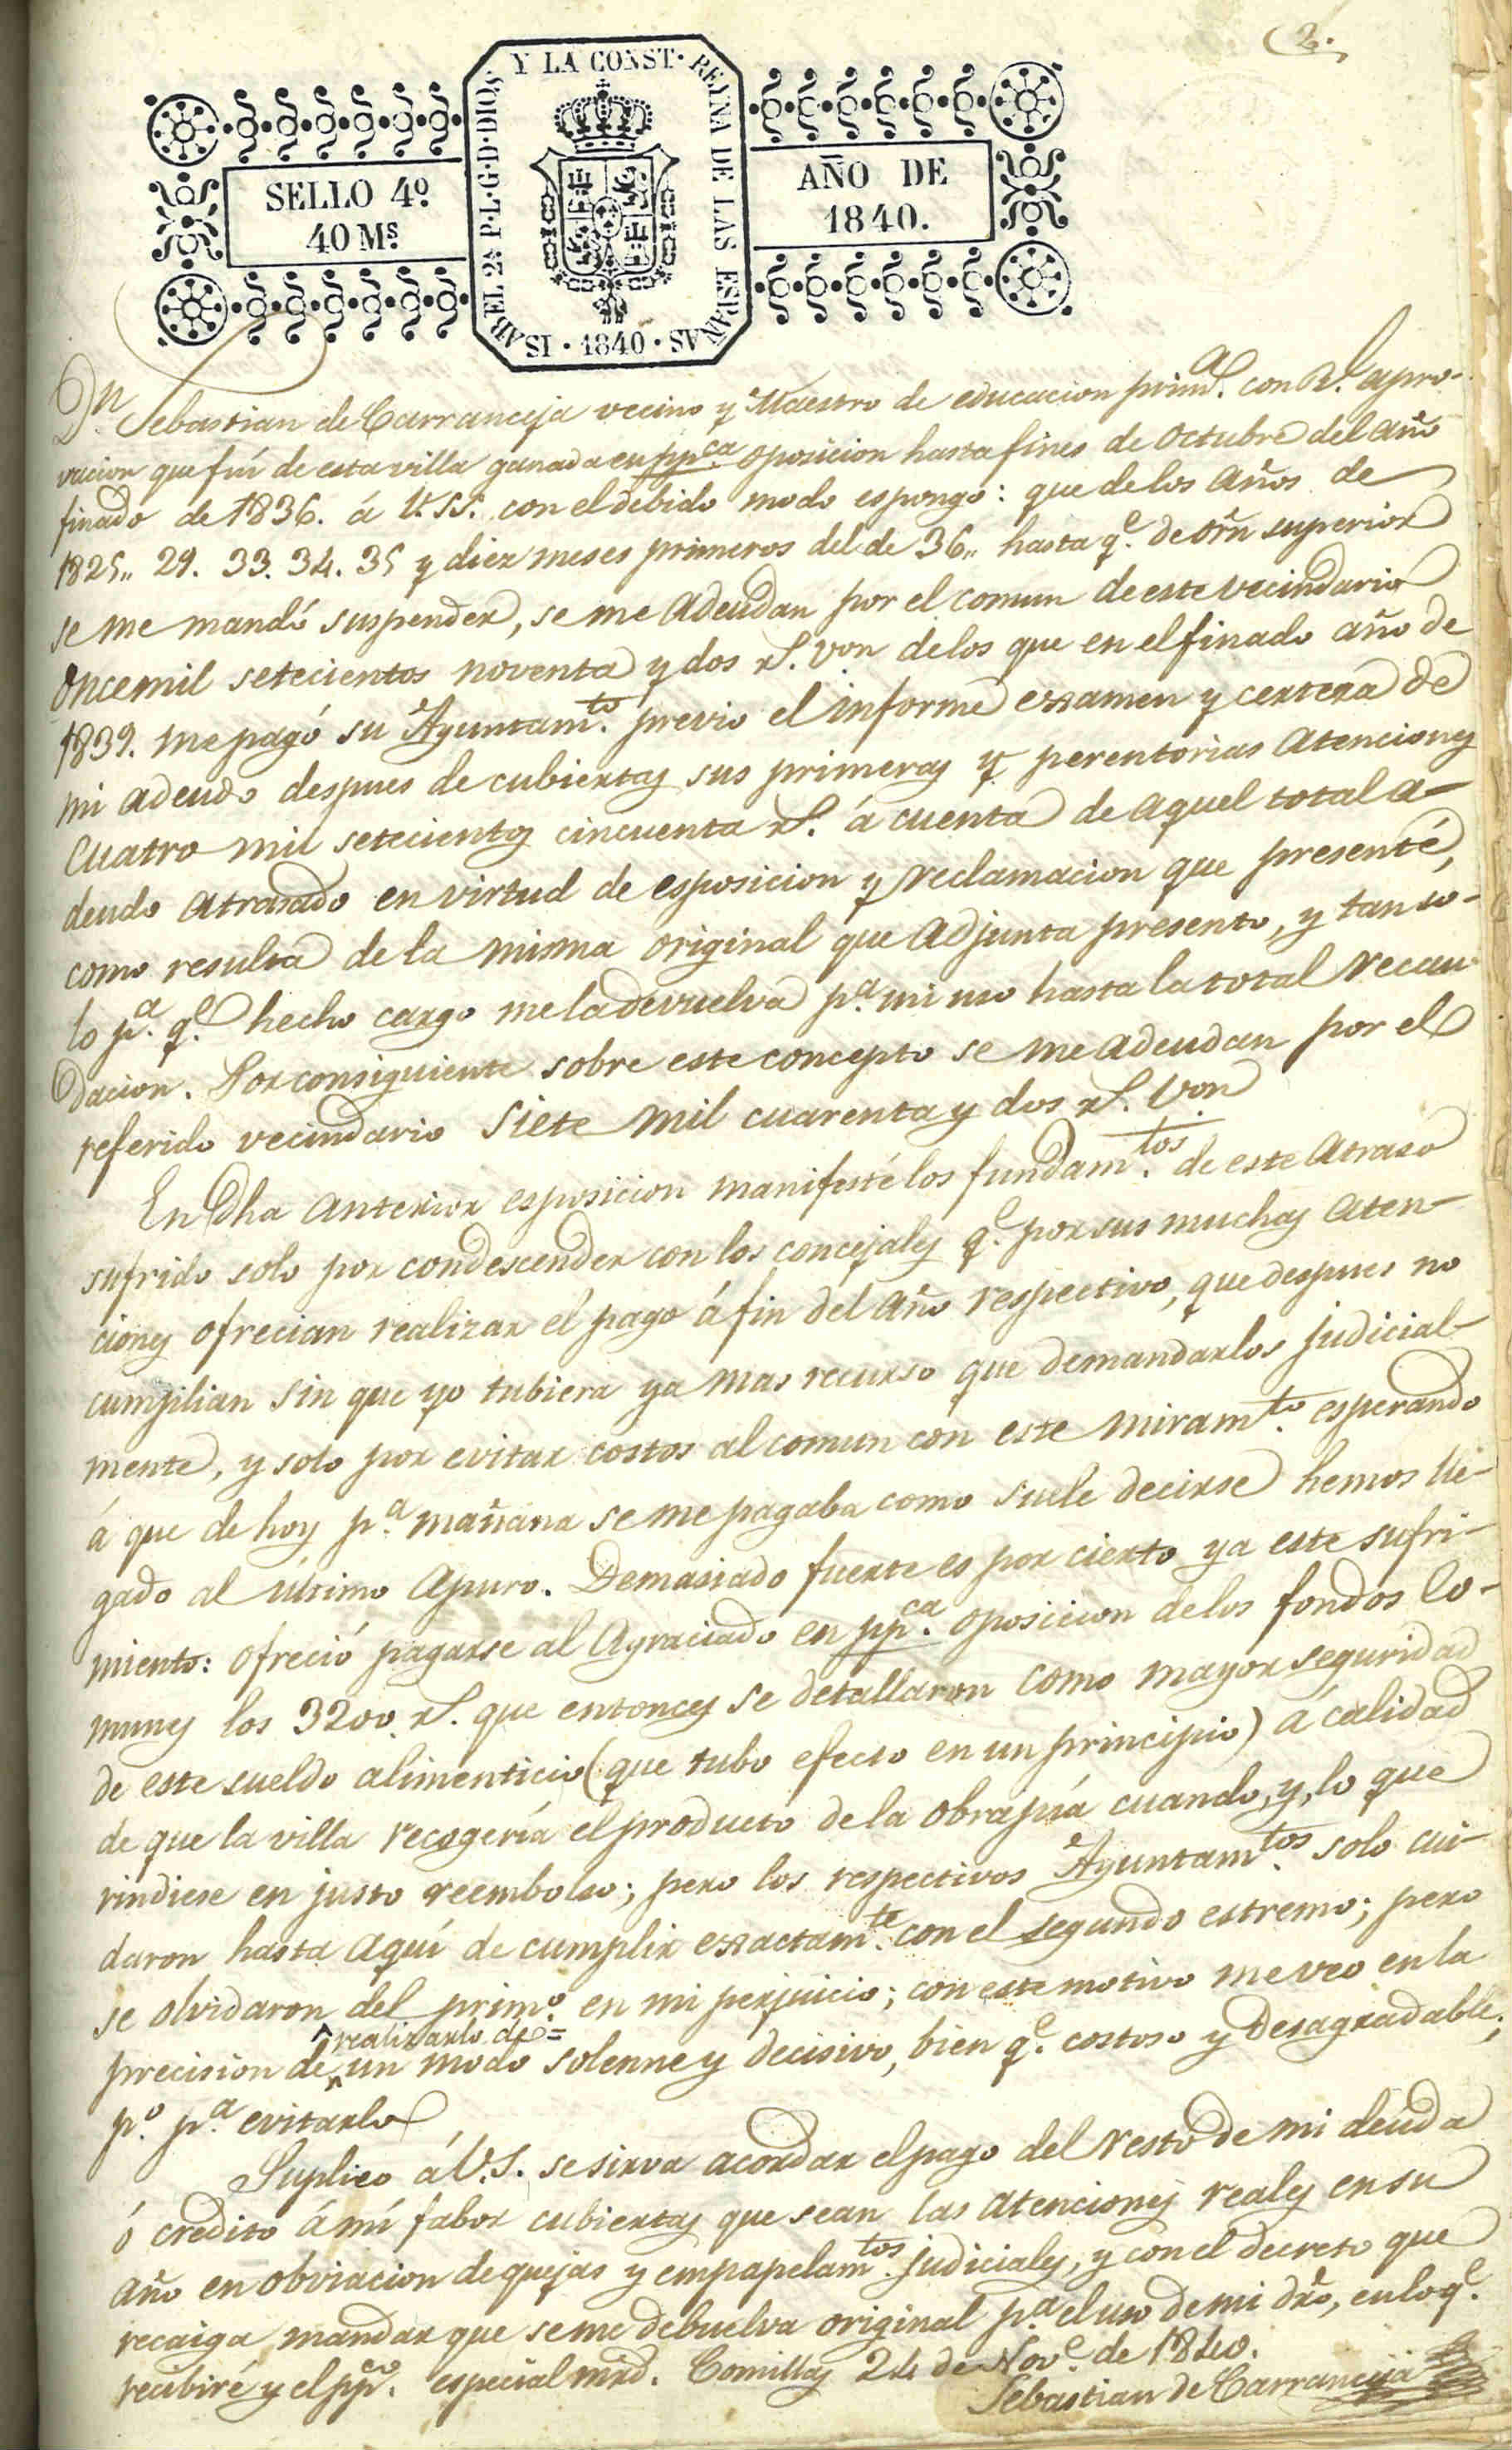 (2.
Y LA CONST· REYNA DE LAS ESPAÑAS · 1840 · ISABEL 2ª P·L·G·D·DIOS
SELLO 4º
40 Ms
AÑO DE
1840.
Dn Sebastian de Carranceja vecino y Maestro de educacion prima. con Rl. apro-
vacion que fuí de esta villa ganada en ppca. oposicion hasta fines de Octubre del año
finado de 1836. á V.SS. con el debido modo espongo: que de los años de
1825,, 29. 33. 34. 35 y diez meses primeros del de 36,, hasta qe. de orn superior
se me mandó suspender, se me adeudan por el comun de este vecindario
Oncemil setecientos noventa y dos rs. von de los que en el finado año de
1839. me pagó su Ayuntamto. previo el informe examen y certeza de
mi adeudo despues de cubiertas sus primeras y perentorias atenciones
Cuatro mil setecientos cincuenta rs. á cuenta de aquel total a-
deudo atrasado en virtud de esposicion y reclamacion que presenté,
como resulta de la misma original que adjunta presento, y tan so-
lo pa. qe. hecho cargo me la devuelva pa. mi uso hasta la total recau
dacion. Por consiguiente sobre este concepto se me adeudan por el
referido vecindario Siete mil cuarenta y dos rs. von
En dha anterior esposicion manifesté los fundamtos. de este atraso
sufrido solo por condescender con los concejales qe. por sus muchas aten-
ciones ofrecian realizar el pago á fin del año respectivo, que despues no
cumplian sin que yo tubiera ya mas recurso que demandarlos judicial-
mente, y solo por evitar costos al comun con este miramto. esperando
á que de hoy pa. mañana se me pagaba como suele decirse hemos lle-
gado al último apuro. Demasiado fuerte es por cierto ya este sufri-
miento: ofreció pagarse al agraciado en ppca. oposicion de los fondos Co-
munes los 3200 rs. que entonces se detallaron como mayor seguridad
de este sueldo alimenticio (que tubo efecto en un principio) á calidad
de que la villa recogería el producto de la obrapía cuando, y, lo que
rindiese en justo reembolso; pero los respectivos Ayuntamtos. solo cui-
daron hasta aquí de cumplir exactamte. con el segundo estremo; pero
se olvidaron del primo. en mi perjuicio; con este motivo me veo en la
^realizarlo de=
precision de^un modo solenne y decisivo, bien qe. costoso y desagradable;
po. pa. evitarlo
Suplico á V.S. se sirva acordar el pago del resto de mi deuda
ó credito á mi fabor cubiertas que sean las atenciones reales en su
año en obviacion de quejas y empapelamtos. judiciales, y con el decreto que
recaiga mandar que se me debuelva original pa. el uso de mi dro, en lo qe.
recibiré y el ppco. especial mrd. Comillas 24 de Nove. de 1840.
Sebastian de Carranceja